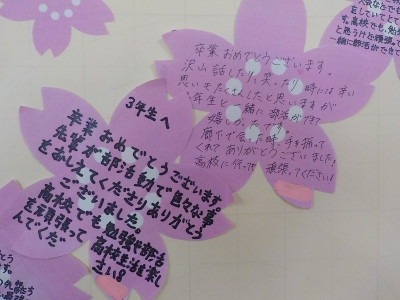 卒業おめでとうございます。
沢山話したり、笑ったり時には辛い
思いをたくさんしたと思いますが
年生と一緒に部活ができて
嬉しかったです。
廊下で会った時、手を振って
くれてありがとうございました!
高校に行っても頑張ってください!
3年生へ
卒業おめでとうございます
先輩方部活動で色々な事
をおしえてくださりありがとう
ございました。
高校でも勉強や部活
を頑張って高校生活を楽し
んでくださいね!
す。高校でも、勉
と思うけど頑張って
一緒に部活ができて